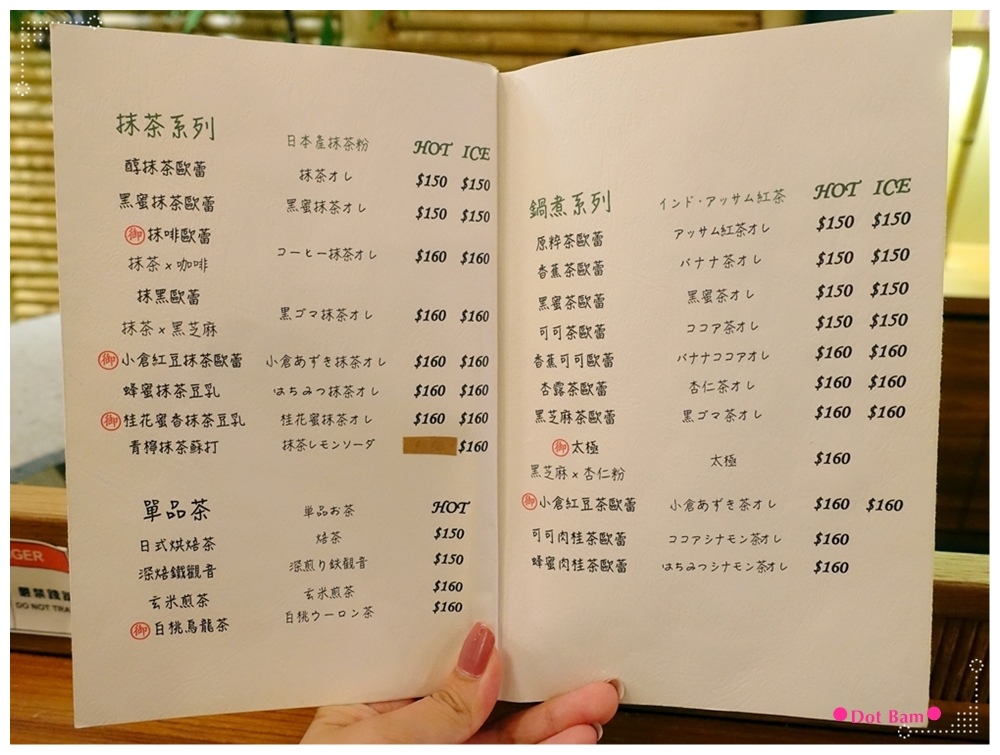 抹茶系列 日本產抹茶粉 HOT ICE
醇抹茶歐蕾 抹茶オレ $150 $150
黑蜜抹茶歐蕾 黒蜜抹茶オレ $150 $150
御 抹啡歐蕾
抹茶 x 咖啡 コーヒー抹茶オレ $160 $160
抹黑歐蕾
抹茶 x 黑芝麻 黒ゴマ抹茶オレ $160 $160
御 小倉紅豆抹茶歐蕾 小倉あずき抹茶オレ $160 $160
蜂蜜抹茶豆乳 はちみつ抹茶オレ $160 $160
御 桂花蜜香抹茶豆乳 桂花蜜抹茶オレ $160 $160
青檸抹茶蘇打 抹茶レモンソーダ $160
單品茶 単品お茶 HOT
日式烘焙茶 焙茶 $150
深焙鐵觀音 深煎り鉄觀音 $150
玄米煎茶 玄米煎茶 $160
御 白桃烏龍茶 白桃ウーロン茶 $160
鍋煮系列 インド・アッサム紅茶 HOT ICE
原粹茶歐蕾 アッサム紅茶オレ $150 $150
香蕉茶歐蕾 バナナ茶オレ $150 $150
黑蜜茶歐蕾 黒蜜茶オレ $150 $150
可可茶歐蕾 ココア茶オレ $150 $150
香蕉可可歐蕾 バナナココアオレ $160 $160
杏露茶歐蕾 杏仁茶オレ $160 $160
黑芝麻茶歐蕾 黒ゴマ茶オレ $160 $160
御 太極
黑芝麻 x 杏仁粉 太極 $160
御 小倉紅豆茶歐蕾 小倉あずき茶オレ $160 $160
可可肉桂茶歐蕾 ココアシナモン茶オレ $160
蜂蜜肉桂茶歐蕾 はちみつシナモン茶オレ $160
GER
嚴禁踐
DO NOT TRA
Dot Bam